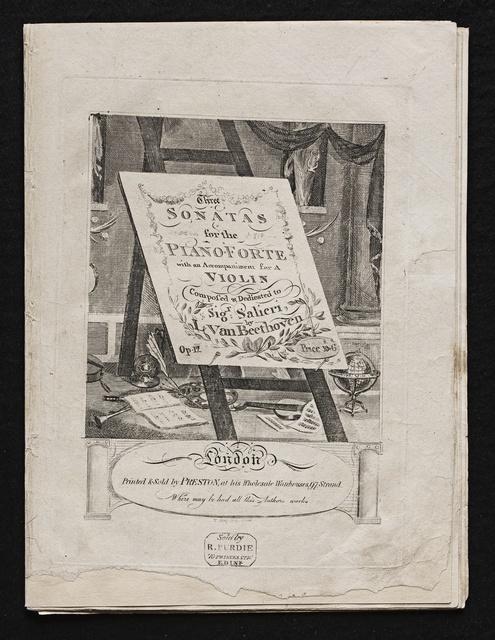 Three
SONATAS
for the
PIANO-FORTE
with an Accompaniment for A
VIOLIN
Composed & Dedicated to
Sigr. Salieri,
by
L. Van Beethoven
Op. 12. Price
London
Printed & Sold by PRESTON, at his Wholesale Warehouses, 97 Strand.
Where may be had all this Authors works
Sold by
R. PURDIE
PRINCES STR.
EDINR.